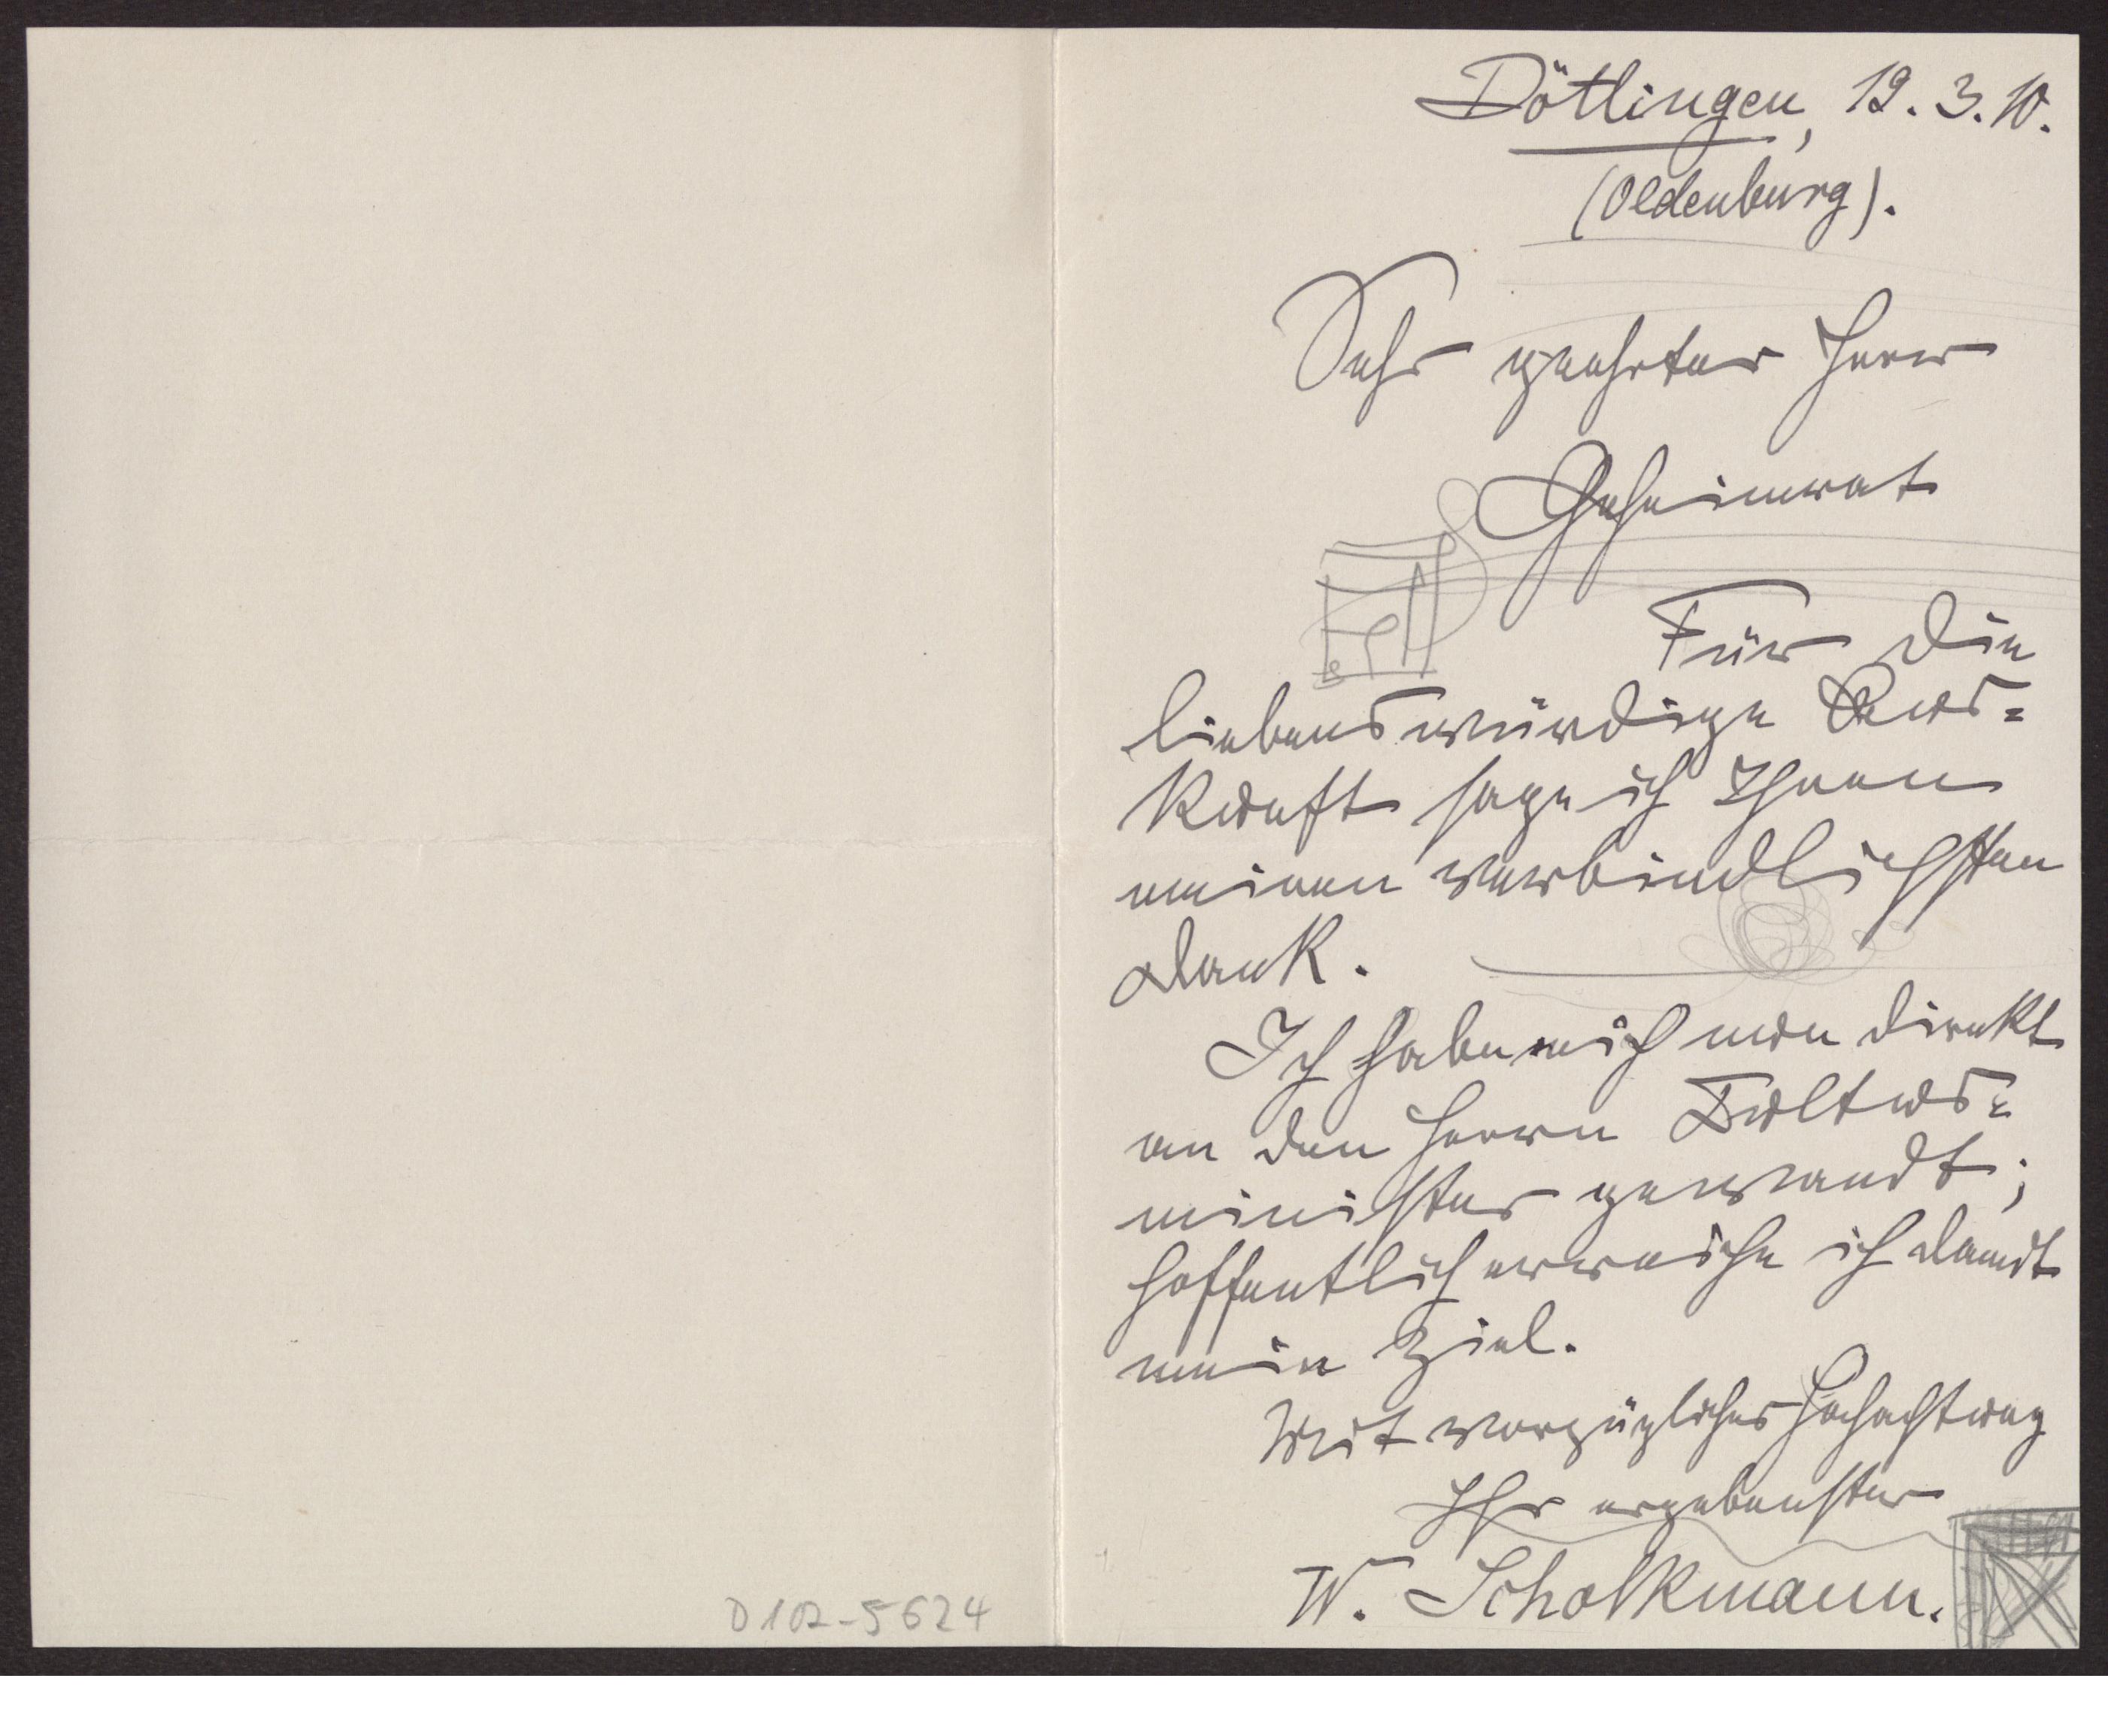 Dötlingen, 19.3.10.
(Oldenburg).
Sehr geehrter Herr
Geheimrat
Für die
liebenswürdige Aus=
kunft sage ich Ihnen
meinen verbindlichsten
Dank.
Ich habe mich nun direkt
an den Herrn Kultus=
minister gewandt;
hoffentlich erreiche ich damit
mein Ziel.
Mit vorzüglicher Hochachtung
Ihr ergebenster
W. Scholkmann.
D102-5624